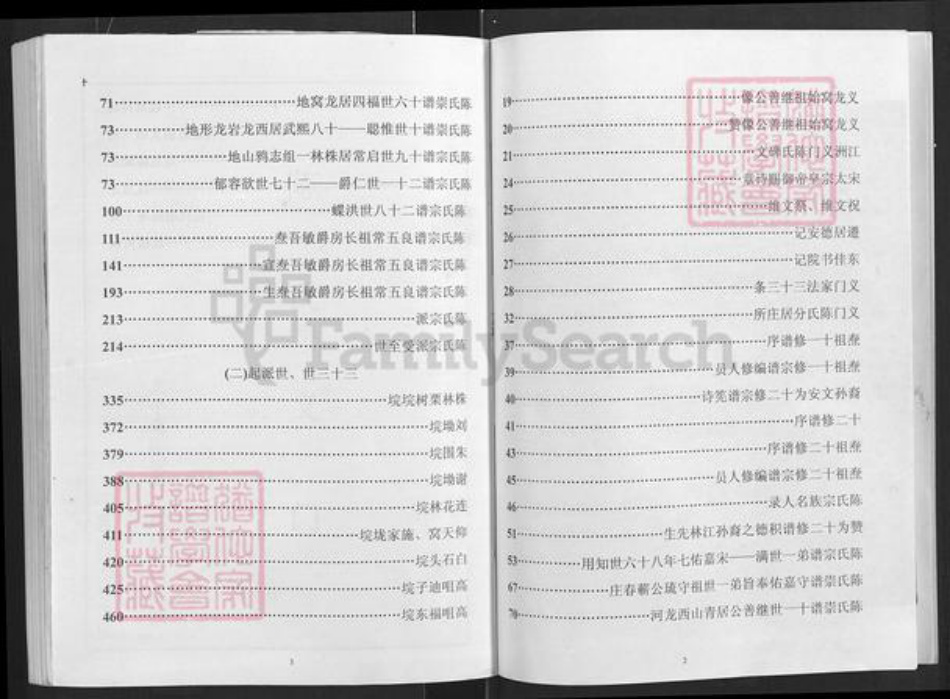 义龙窝始祖继善公像 19
义龙窝始祖继善公像赞 20
江洲义门陈氏碑文 21
宋太宗皇帝御赐诗章 24
祝文维、祭文维 25
遷居德安记 26
东佳书院记 27
义门家法三十三条 28
义门陈氏分居庄所 32
焘祖十一修谱序 37
焘祖十一修宗谱编修人员 39
裔孙文安为十二修宗谱笎诗 40
十二修谱序 41
焘祖十二修谱序 43
焘祖十二修宗谱编修人员 45
陈氏宗族名人录 46
赞为十二修谱积德之裔孙江林先生 51
陈氏宗谱弟一世满——宋嘉佑七年八十六世知用 53
陈氏崇谱守嘉佑奉旨弟一世祖守琉公蕲春庄 67
陈氏崇谱十一世继善公居青山西龙河 70
2
陈氏崇谱十六世福四居龙窝地 71
陈氏崇谱十世惟聪——十八熙武居西龙岩龙形地 73
陈氏崇谱十九世启常居株林一组志鸦山地 73
陈氏崇谱二十一世仁爵——二十七世欲容郁 73
陈氏宗谱二十八世洪蝶 100
陈氏宗谱良五常祖长房爵敏吾焘 111
陈氏宗谱良五常祖长房爵敏吾焘宣 141
陈氏宗谱良五常祖长房爵敏吾焘生 193
陈氏宗派 213
陈氏宗派受至世 214
三十三世、世派起(二)
株林栗树垸垸 335
刘坳垸 372
朱围垸 379
谢坳垸 388
连花林垸 405
仰天窝、施家垅垸 411
白石头垸 420
高咀迪子垸 425
高咀福东垸 460
3
FamilySearch